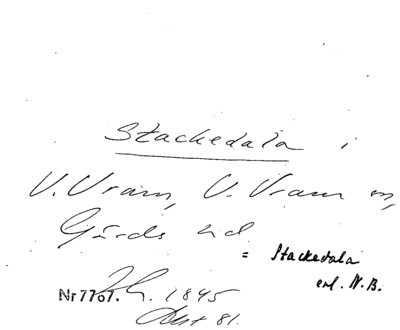 Stackedala i
V. Vram, V. Vram sn,
Gärds hd
= Stackedala
enl. N.B.
Nr 7707. 1845
Avst 81.